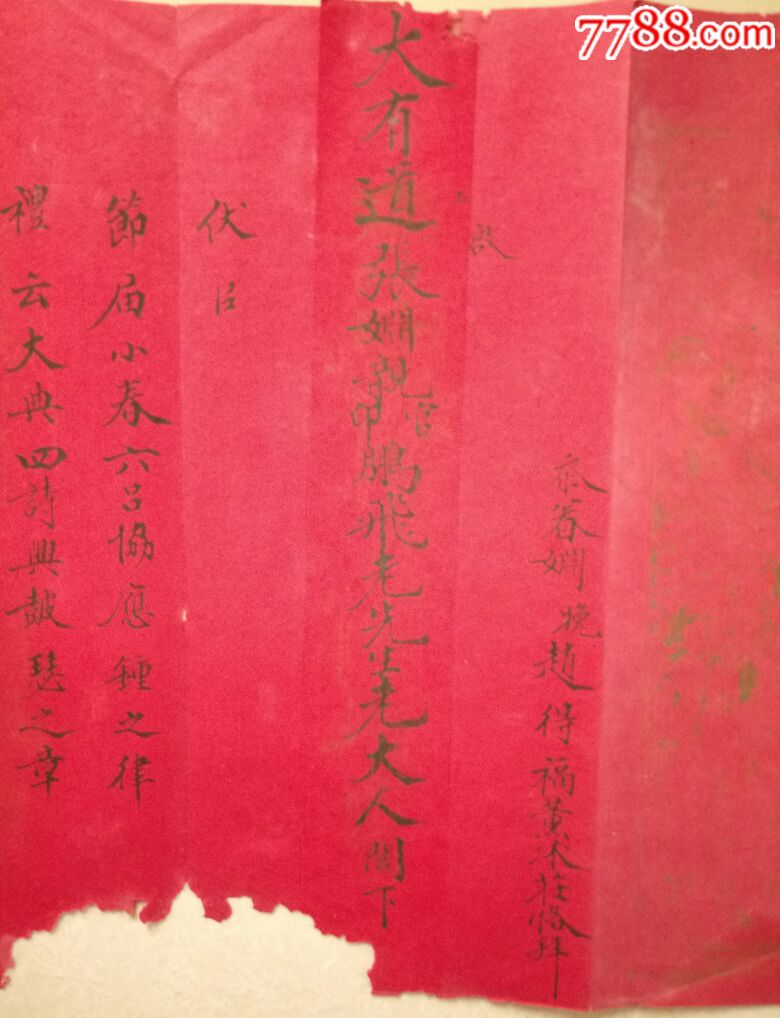 7788.com
忝眷姻晚趙得福薰沐莊恪拜
啟
大有道張姻親官印鵬飛老先生老大人閣下
伏㠯
節届小春六吕協應鍾之律
禮云大典四詩興鼓瑟之章